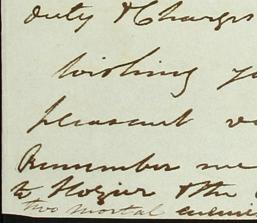 duty & Charges
wishing
pleasant
Remember me
to Hozier & the
two mortal enemie